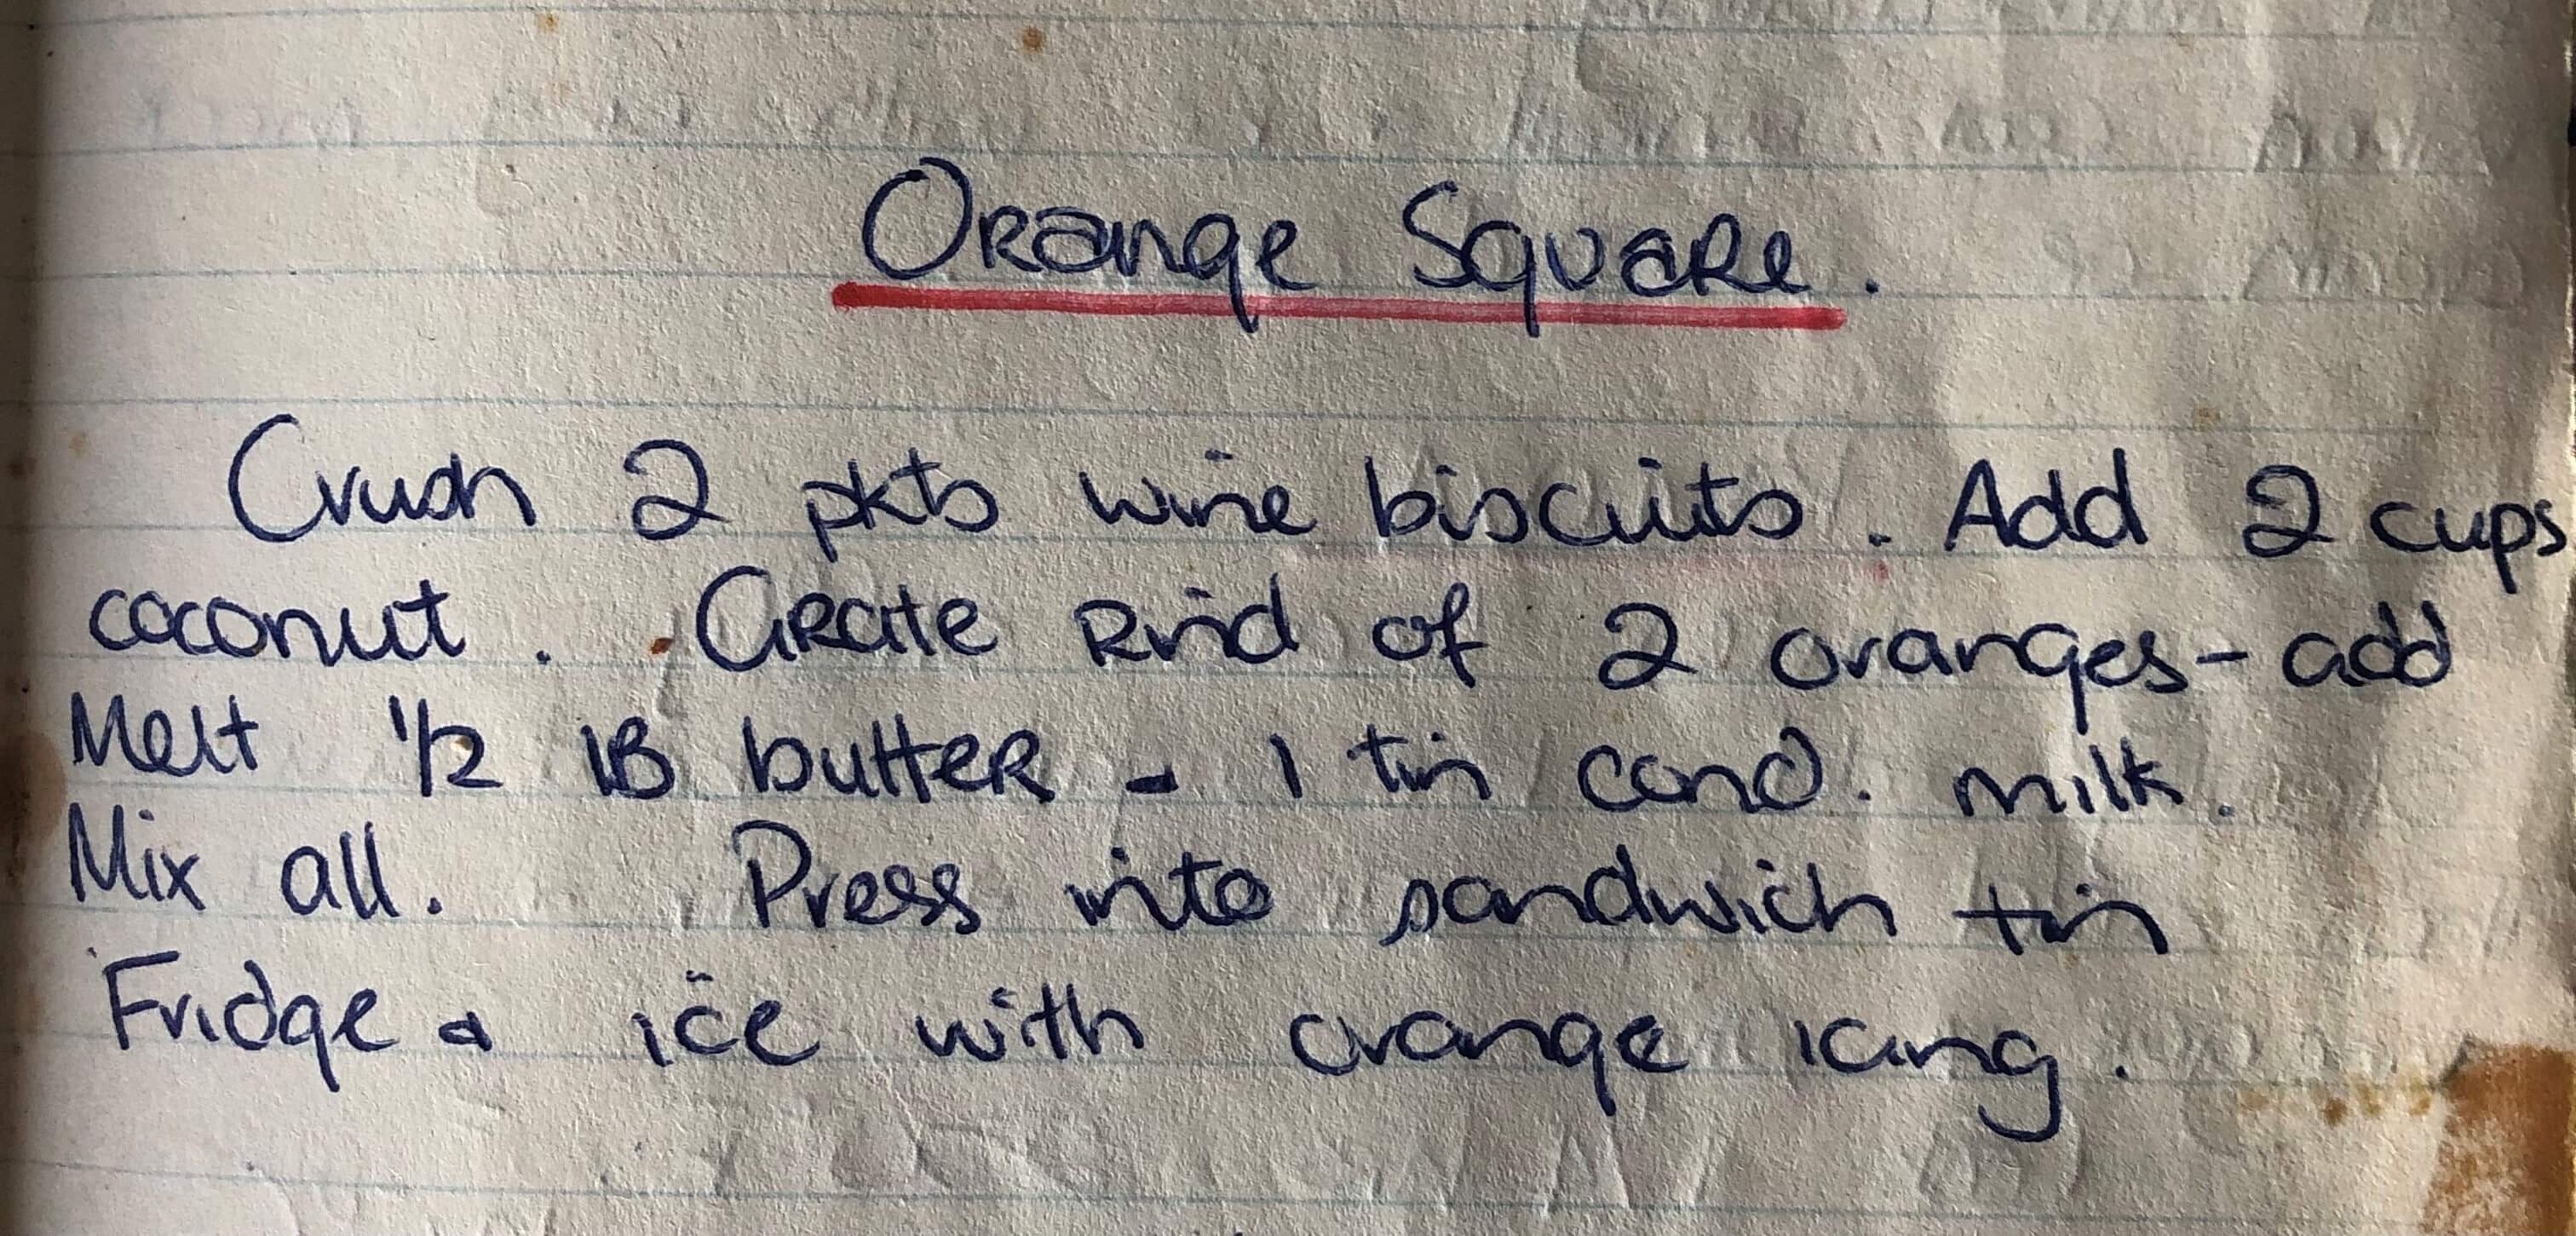 Orange Square.
Crush 2 pkts wine biscuits. Add 2 cups
coconut. Grate Rind of 2 oranges - add
Melt 1/2 lB butter - 1 tin cond. milk.
Mix all. Press into sandwich tin
Fridge & ice with orange icing.